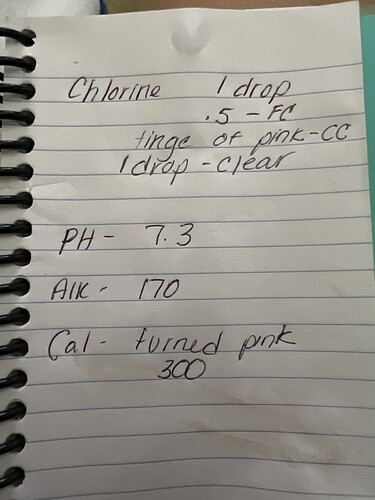 Chlorine 1 drop
.5 - FC
tinge of pink - CC
1 drop - clear
PH - 7.3
Alk - 170
Cal - turned pink
300